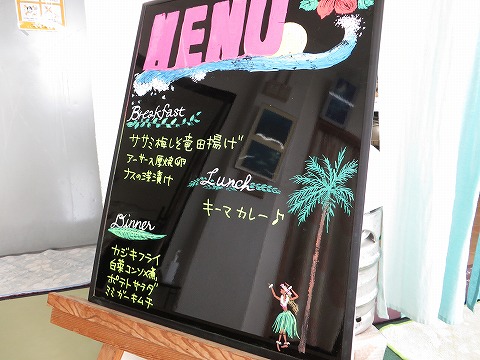 MENU
Breakfast
ササミ梅しそ竜田揚げ
アーサー入厚焼卵
ナスの浅漬け
Lunch
キーマカレー♪
Dinner
カジキフライ
白菜コンソメ煮
ポテトサラダ
ミミガーキムチ